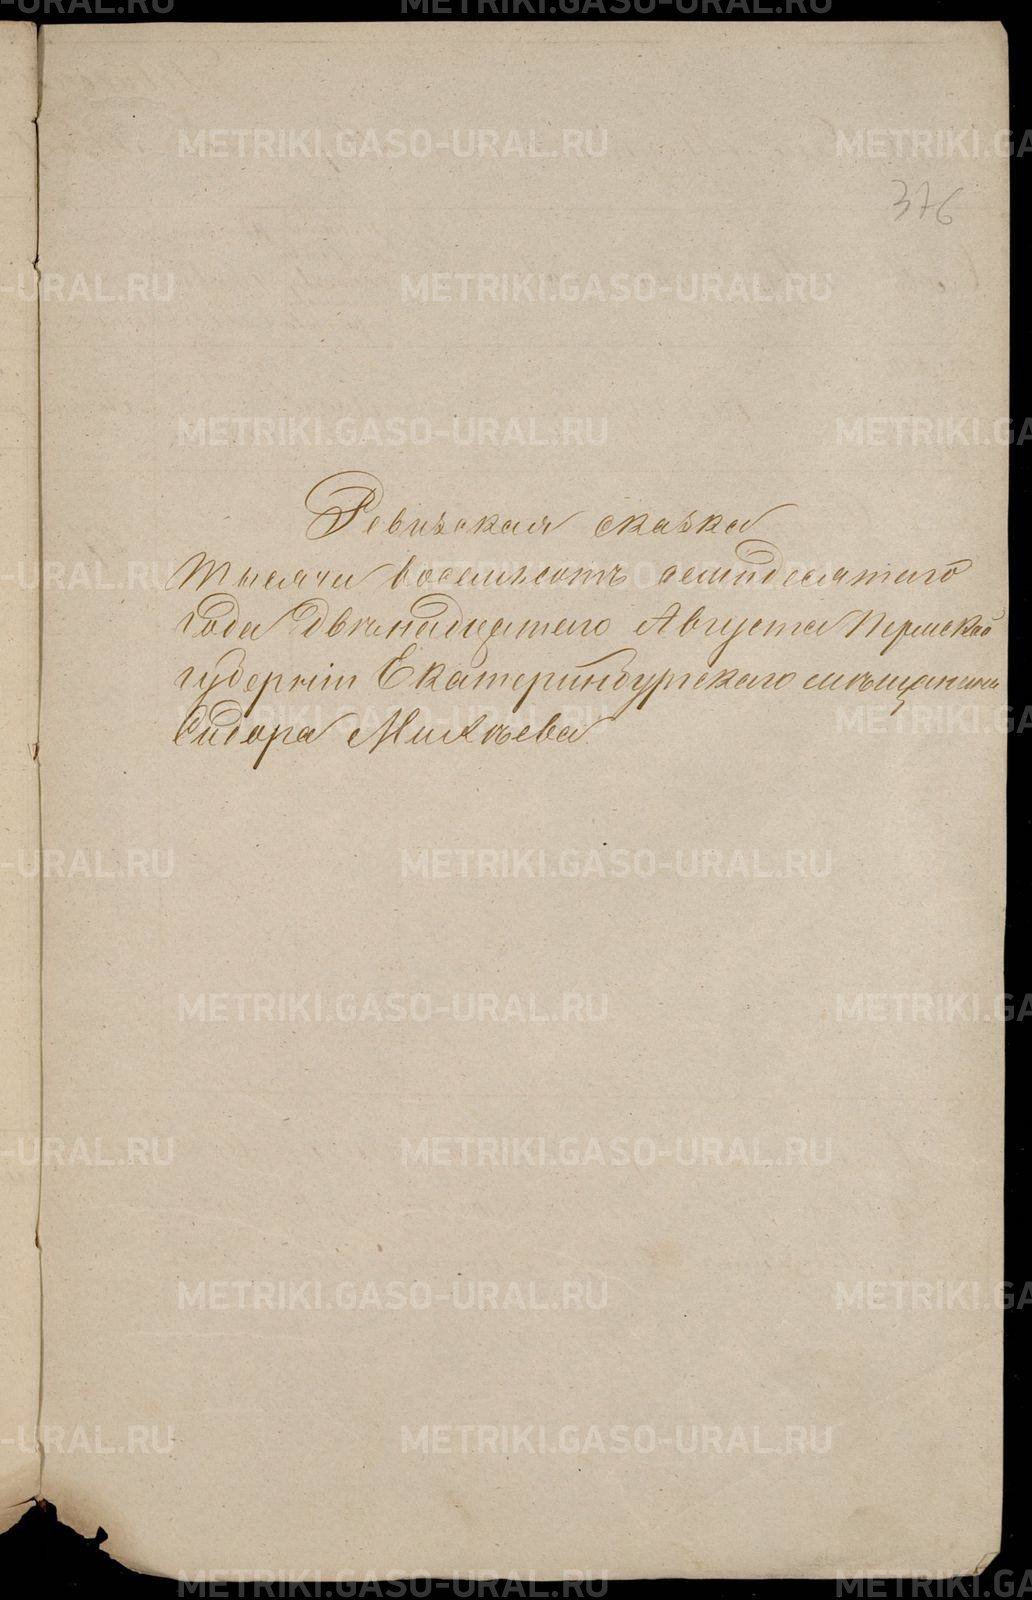 376
Ревизская сказка
Тысячи восемьсотъ семидесятаго
года двѣнадцатаго Августа Пермской
губерніи Екатеринбургскаго мѣщанина
Сидора Михѣева
METRIKI.GASO-URAL.RU